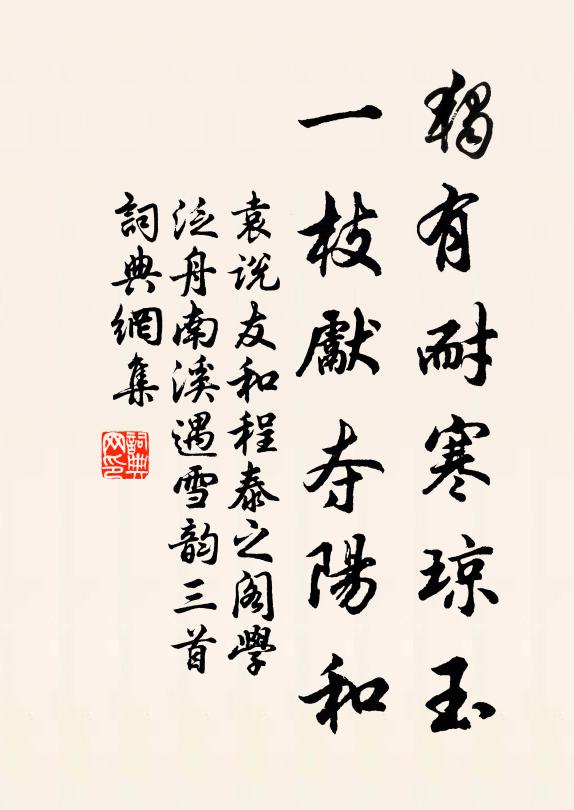 獨有耐寒琼玉
一枝獻夺陽和
袁说友和程泰之阁學
泛舟南溪遇雪韵三首
詞典網集
詞典
网印